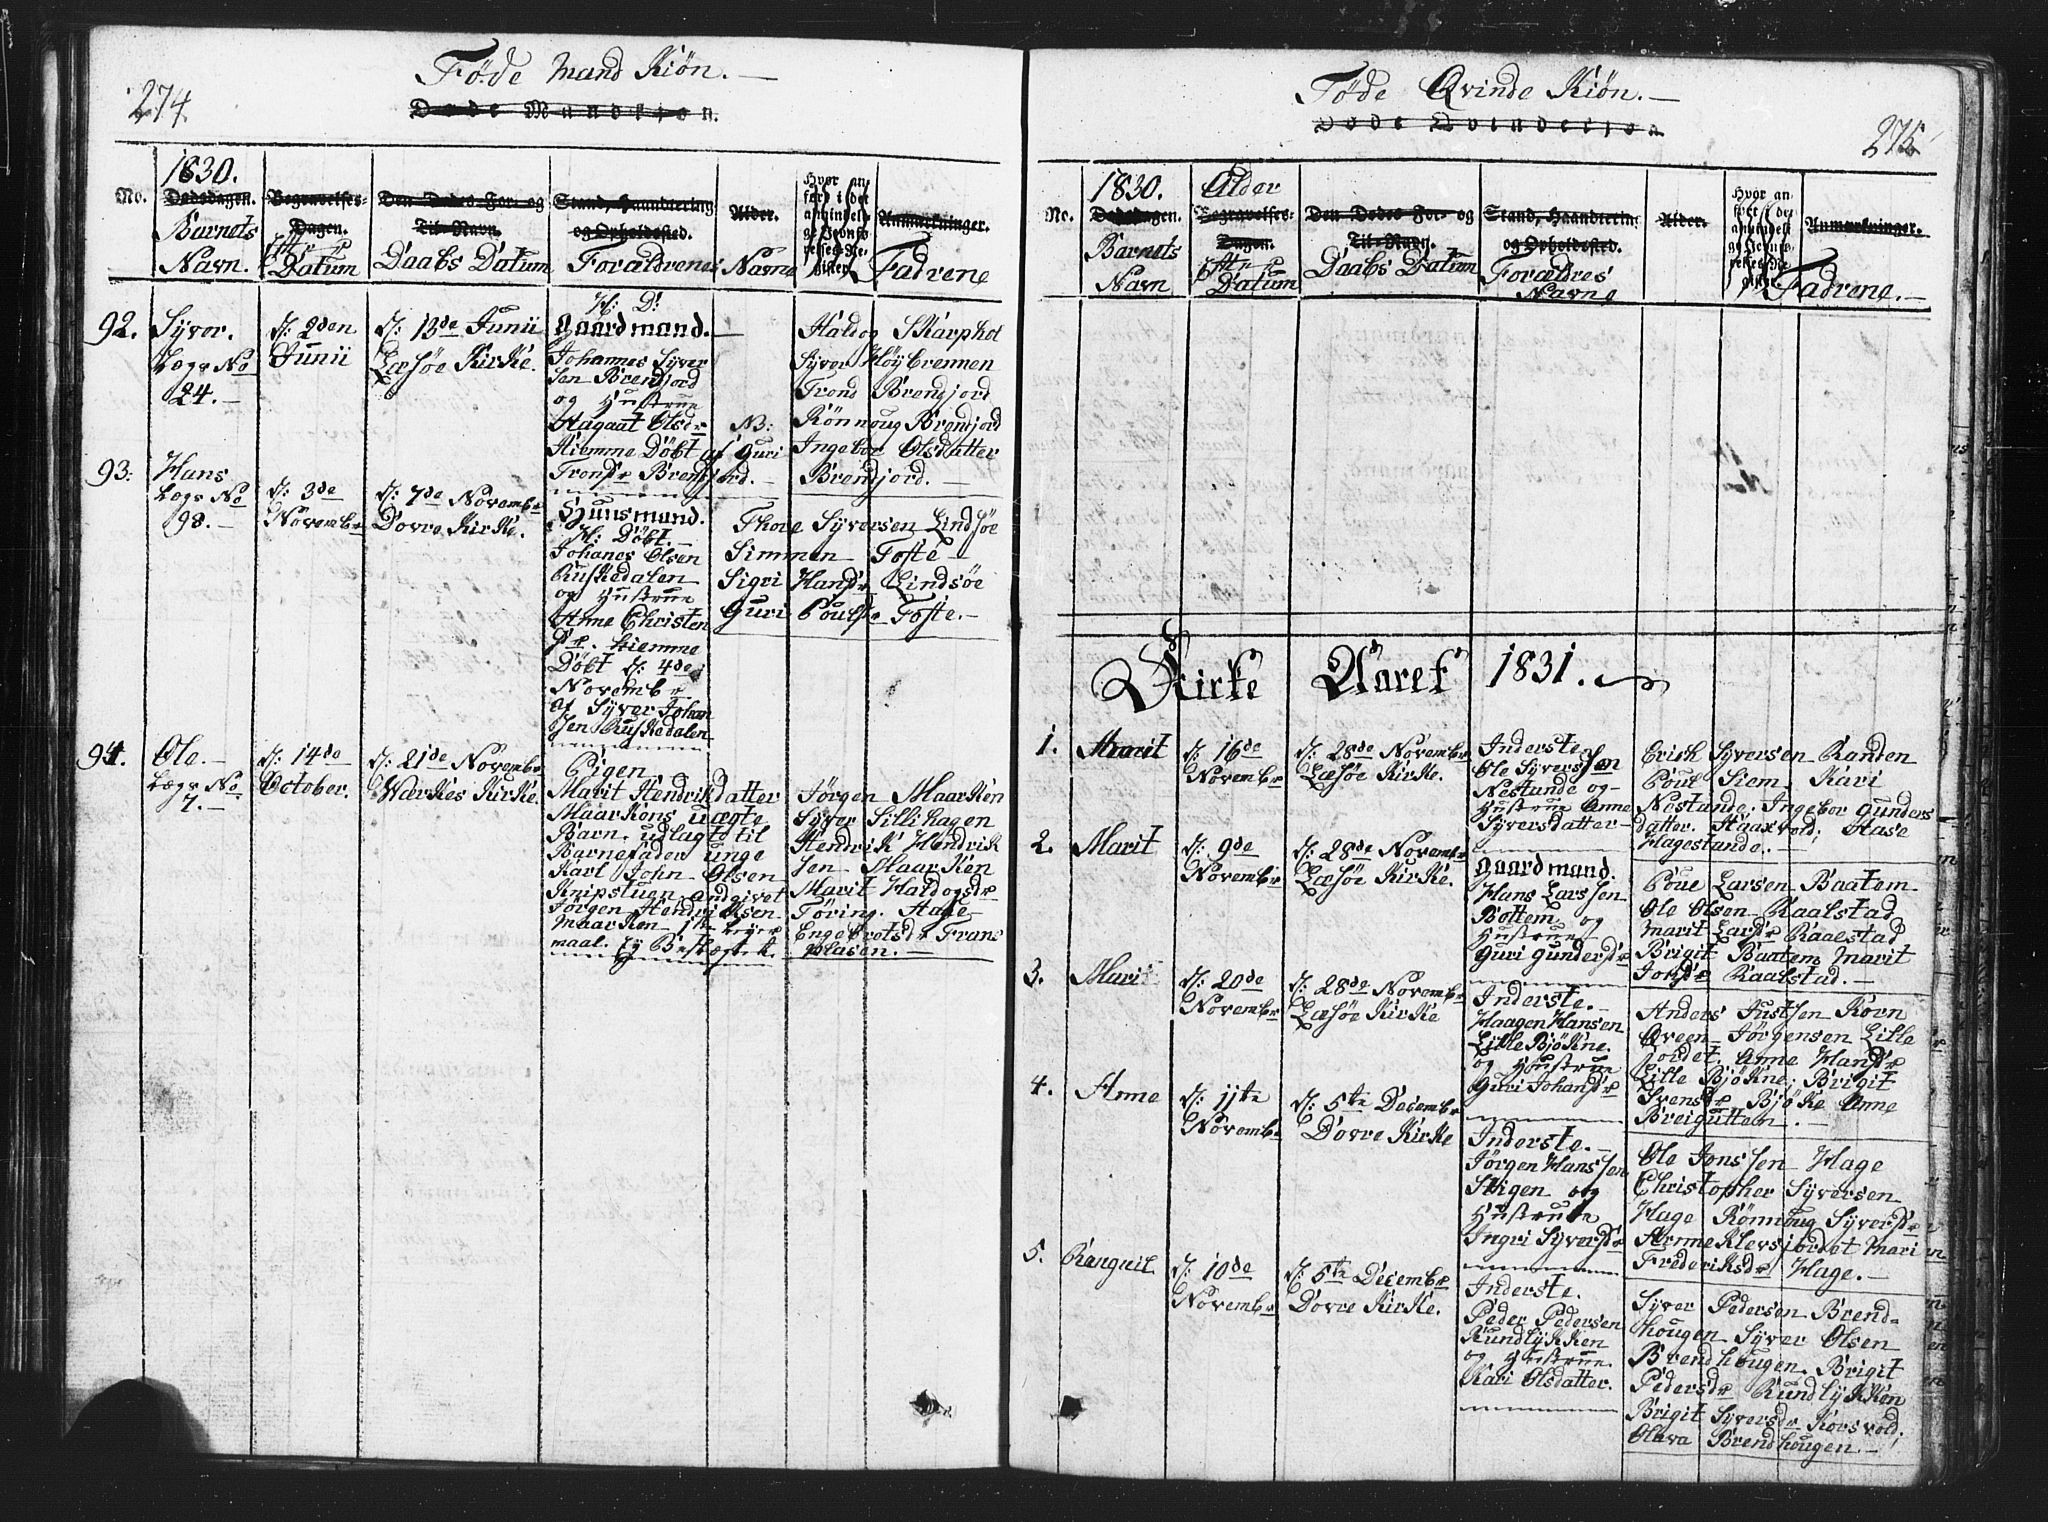 274
Føde Mand Kiøn. —
Døde Mandkjøn.
No.
1830.
Dødsdagen.
Barnets
Navn.
Begravelses-
Dagen.
Datum
Den Dødes For- og
Til-Navn.
Daabs Datum
Stand, Haandtering
og Opholdssted.
Forældrenes
Alder.
Navne
Hvor an-
ført i det
Anmærkninger.
Fadrene
92.
Syver.
Lægs No
24. —
d: 2den
Junii
d: 13de Junii
Læsøe Kirke.
H: D:
Gaardmand. —
Johannes Syver
sen Brendjord
og Hustrue
Aagaat Olsdr
Hiemme Døbt af Guri
Tronsdr Brendjord. —
NB:
Haldog Skarphol
Syver Høybrennen
Trond Brendjord
Rönnoug Brendjord
Ingebor Olsdatter
Brendjord. —
93.
Hans
Lægs No
98. —
d: 3de
Novembr
d: 7de Novembr
Dovre Kirke.
Huusmand.
H: Døbt. —
Johanes Olsen
Ruskedalen
og Hustrue
Anne Christen
sdr. hiemme
Döbt d: 4de
Novembr
af Syver Johan
sen Ruskedalen
Thore Syversen Lindsøe
Simmen Tofte —
Sigri Hansdr Lindsøe
Guri Poulsdr Tofte. —
94.
Ole. —
Lægs No
7. —
d: 14de
October.
d: 21de Novembr
Værkes Kirke.
Pigen
Marit Hendrikdatter
Maarkens uægte
Barn. udlagt til
Barnefader unge
Karl John Olsen
Knipstuen. andgivet
Jørgen Hendriksen
Maarken 1te Leyer
maal.
Jørgen Maarken
Syver Sillihagen
Hendrik Hendrik
sen Maarken
Marit Haldogsdr
Tøring. Aase
Engebretsdr Frans
plasen. —
Føde Qvinde Kiøn. —
Døde Qvindekjøn
275
No.
1830.
Dødsdagen.
Barnets
Navn
Alder
Begravelses-
Dagen.
Datum
Den Dødes For- og
Til-Navn.
Daabs Datum
Stand, Haandtering
og Opholdssted.
Forældres
Navne
Alder.
Hvor an-
ført i det
Anmærkninger.
Fadrene. —
Kirke Aaret 1831.
1.
Marit
d: 16de
Novembr
d: 28de Novembr
Læsøe Kirke.
Inderste
Ole Syversen
Nestande og
Hustrue Anne
Syversdatter
Erich Syversen Randen
Poul Siem. Kari
Nestande. Ingebor Gunders
datter. Haaxvold; Aase
Hagestande. —
2.
Marit
d: 9de
Novembr
d: 28de Novembr
Læsøe Kirke.
Gaardmand.
Hans Larssen
Bottem og
Hustrue
Guri Gundersdr
Poul Larsen Baatem
Ole Olsen Raalstad
Marit Larsdr Raalstad
Brigit Baatem Marit
Jonsdr Raalstad. —
3.
Mari
d: 20de
Novembr
d: 28de Novembr
Læsøe Kirke
Inderste. —
Haagen Hansen
Lille Bjökne.
og Hustrue
Guri Johansdr
Anders Justsen Korn
Sveen Jørgensen Lille
jordet. Anne Hansdr
Lille Bjökne. Brigit
Svensdr Bjöke Anne
Breiguttem. —
4.
Anne
d: 11te
Novembr
d: 5te Decembr
Dovre Kirke
Inderste. —
Jørgen Hanssen
Stigen og
Hustrue
Ingri Syversdr
Ole Jonssen Hage
Christopher Syversen
Hage Rønnoug Syversdr
Anne Klevsjordet Mari
Frederiksdr Hage. —
5.
Rangnil
d: 10de
Novembr
d: 5te Decembr
Dovre Kirke.
Inderste.
Peder Pedersen
Rundlykken
og Hustrue
Kari Olsdatter.
Syver Pedersen Brend-
hougen Syver Olsen
Brendhougen. Brigit
Pedersdr Rundlykken
Brigit Syversdr Korsvold.
Olava Brendhougen. —